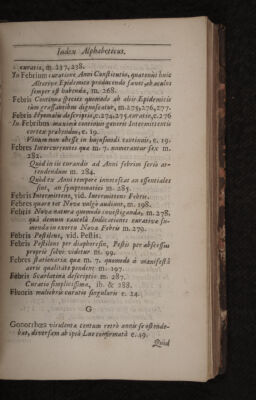 Index Alphabeticus.
curatio, m. 237, 238.
In Febrium curatione Anni Constitutio, quatenus huic
Alterive Epidemico producendo favet, ob oculos
semper est habenda, m. 268.
Febris Continua species quomodo ab aliis Epidemicis
tum grassantibus dignoscatur, m. 275, 276, 277.
Febris Hyemalis descriptio, c. 274, 275. curatio, c. 276
In Febribus maximè convenit generis Intermittentis
cortex probandus, c. 19.
Vinum non obesse in hujusmodi continuis, c. 19.
Febres Intercurrentes quæ m. 7. numerantur sex m.
282.
Quid in iis curandis ad Anni febrim seriò at-
tendendum m. 284.
Quid ex Anni tempore innotescat an essentiales
sint, an symptomatica m. 285.
Febris Intermittens, vid. Intermittens Febris.
Febres quare tot Novæ vulgò audiant, m. 198.
Febris Novæ natura quomodo investiganda, m. 278,
quâ demum cautelâ Indicationes curativæ su-
mendæ in exortâ Novâ Febri m. 279.
Febris Pestilens, vid. Pestis.
Febris Pestilens per diaphoresin, Pestis per abscessus
propriè solvi videtur m. 99.
Febres stationariæ quæ m. 7. quomodo à manifestâ
aeris qualitate pendent m. 197.
Febris Scarlatina descriptio m. 287.
Curatio simplicissima, ib. & 288.
Fluoris muliebris curatio singularis e. 24.
G
Gonorrhœa virulenta centum retrò annis se ostende-
bat, diversam ab ipsâ Lue confirmatâ e. 49.
Quid